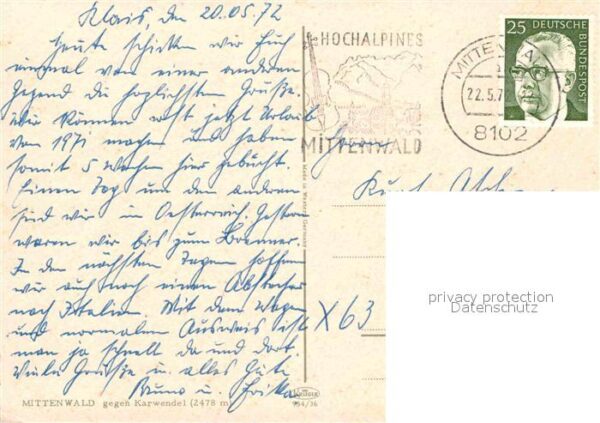 Klais, den 20.05.72
Heute schicken wir Euch
einmal von einer anderen
Gegend die herzlichsten Grüße.
Wir können erst jetzt Urlaub
von 1971 machen und haben
somit 5 Wochen hier gebucht.
Einen Tag um den anderen
sind wir in Oesterreich. Gestern
waren wir bis zum Brenner.
In den nächsten Tagen hoffen
wir auch noch einen Abstecher
nach Italien. Mit dem Wagen
und normalem Ausweis ist
man ja schnell da und dort.
Viele Grüsse u. alles Gute
Bruno u. Erika
MITTENWALD gegen Karwendel (2478 m)
HOCHALPINES
MITTENWALD
MITTENWA
22.5.7
8102
25 DEUTSCHE
BUNDESPOST
Kurt
X63
privacy protection
Datenschutz